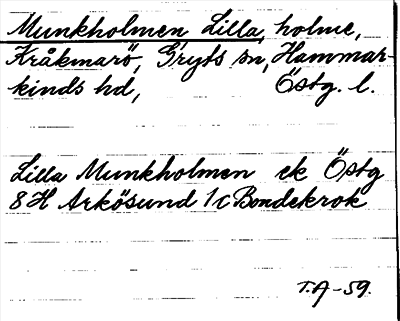 Munkholmen Lilla, holme,
Kråkmarö, Gryts sn, Hammar-
kinds hd, Östg. l.
Lilla Munkholmen ek Östg
8H Arkösund 1c Bondekrok
T.A-59.